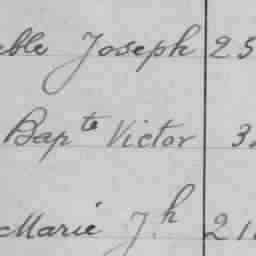 Joseph 25
Bapte Victor 3
Marie J.h 21